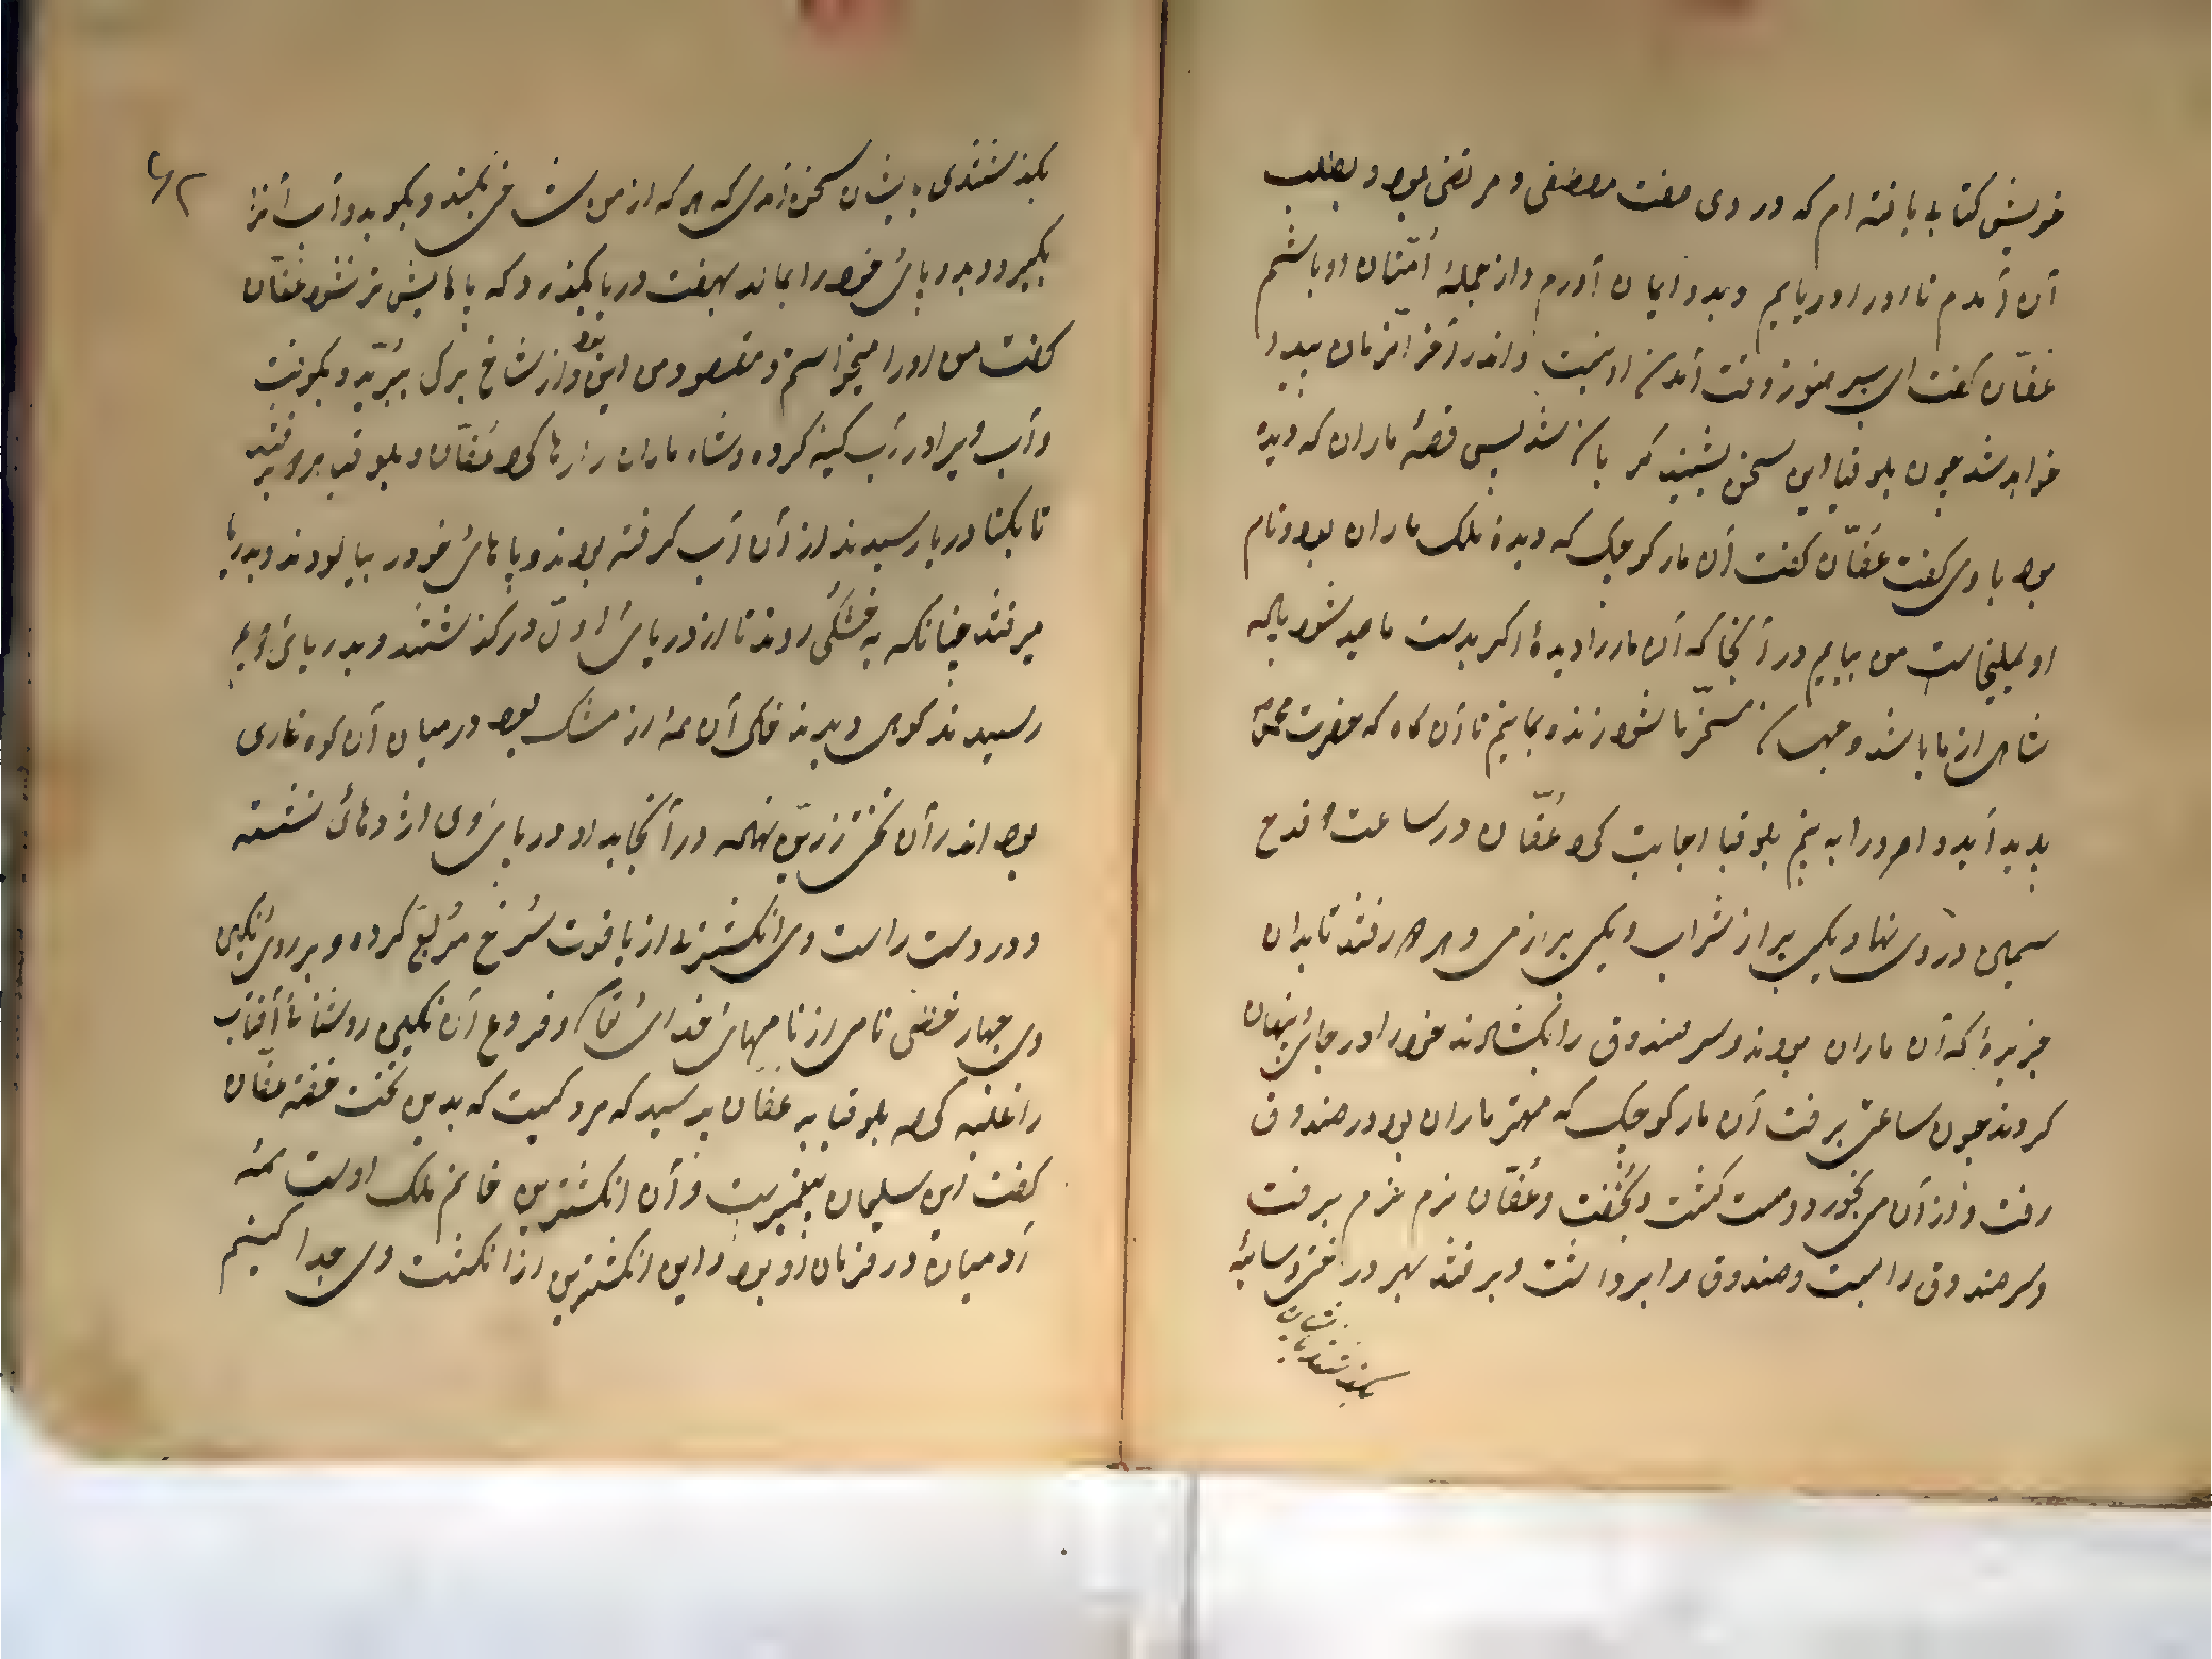 خویش کتابی یافته ام که در وی صفت مصطفی و مرتضی بود و بطلب
آن آمدم تا او را دریابم و بدو ایمان آورم و از جملهٔ امتان او باشم
عفّان گفت ای پسر هنوز وقت آمدن او نیست و اندر آخر الزمان پیدا
خواهد شد چون بلوقیا این سخن بشنید کر یان شد پس قصهٔ ماران که دیده
بود با وی گفت عفّان گفت آن مار کوچک که دیدهٔ ملک ماران بود و نام
او یملیخاست من بیایم در آنجا که آن مار را دیدهٔ اگر بدست ما صید شود یا که
شاهی از ما باشد و جهان مسخّر ما شود زنده بمانیم تا آن گاه که حضرت محمد
پدید آید و او را به بینم بلوقیا اجابت کرد عُفّان در ساعت قدح
سیمین در وی نهاد یکی پر از شراب و یکی پر از می و هر دو رفتند تا بدان
جزیرهٔ که آن ماران بودند و سر صندوق را بگشادند خود را در جای پنهان
کردند چون ساعتی برفت آن مار کوچک که مهتر ماران بود در صندوق
رفت و از آن می بخورد و مست گشت و بخفت و عُفّان نرم نرم برفت
و سر صندوق را ببست و صندوق را برداشت و برفتند بهر درختی و سایهٔ
بگذشتندی با ایشان
بگذشتندی با ایشان سخن آمدی که هر که از من شاخی بکند و بکوبد و آب آنرا
بگیرد و بدو پای خود را بمالد بهفت دریا بگذرد که پاهایش تر نشود عفّان
گفت من او را میخواستم و مقصود من این بود و از شاخ برگی ببُرّید و بکوفت
و آب ویرا در آب گینه کرده و شاه ماران را رها کرد عُفّان و بلوقیا برفتند
تا بکنار دریا رسیدند از آن آب گرفته بودند و پاهای خود در بیالودند و بدریا
میرفتند چنانکه به خشکی روند تا از دریای اوّل در گذشتند و بدریای دویم
رسیدند کوهی دیدند خاک آن همه از مشک بود در میان آن کوه غاری
بود اندر آن تختی زرین نهاده در آنجا بد او در پای وی اژدهائی نشسته
و در دست راست وی انگشتری از یاقوت سُرخ مُربّع کرده و بر روی نگین
وی چهار خطی نامی از نامهای خدای تعالی و فروغ آن نگین روشنائی آفتاب
را غلبه کرد بلوقیا به عفّان پرسید که مرد کیست که بدین تخت خفته عفّان
گفت این سلیمان پیغمبریست و آن انگشترین خاتم ملک اوست همه
آدمیان در فرمان او بود و این انگشترین از انگشت وی جدا کنیم